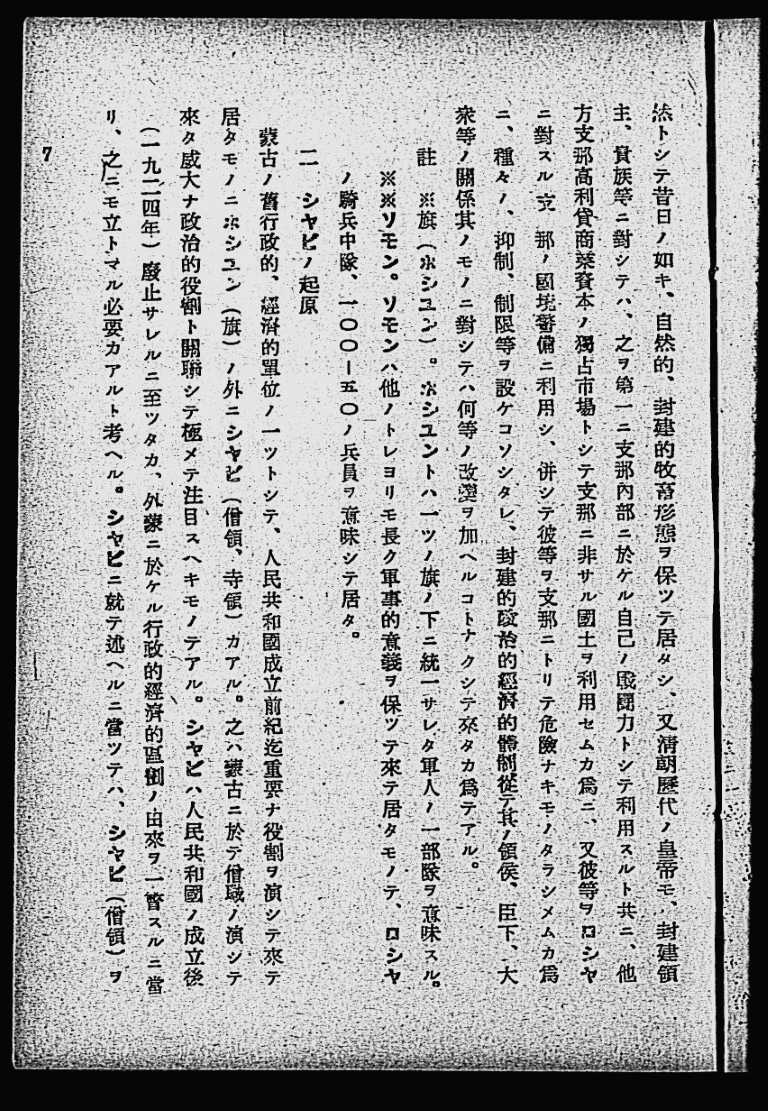 然トシテ昔日ノ如キ、自然的、封建的牧畜形態ヲ保ツテ居タシ、又淸朝歷代ノ皇帝モ、封建領
主、貴族等ニ對シテハ、之ヲ第一ニ支那內部ニ於ケル自己ノ戰鬪力トシテ利用スルト共ニ、他
方支那高利貸商業資本ノ獨占市場トシテ支那ニ非サル國土ヲ利用セムカ爲ニ、又彼等ヲロシヤ
ニ對スル支 那ノ國境警備ニ利用シ、併シテ彼等ヲ支那ニトリテ危險ナキモノタラシメムカ爲
ニ、種々ノ、抑制、制限等ヲ設ケコソシタレ、封建的政治的經濟的體制從テ其ノ領侯、臣下、大
衆等ノ關係其ノモノニ對シテハ何等ノ改變ヲ加ヘルコトナクシテ來タカ爲テアル。
註 ※旗(ホシユン)。ホシユントハ一ツノ旗ノ下ニ統一サレタ軍人ノ一部隊ヲ意味スル。
※※ソモン。ソモンハ他ノトレヨリモ長ク軍事的意義ヲ保ツテ來テ居タモノテ、ロシヤ
ノ騎兵中隊、一〇〇―五〇ノ兵員ヲ意味シテ居タ。
二 シヤビノ起原
蒙古ノ舊行政的、經濟的單位ノ一ツトシテ、人民共和國成立前紀迄重要ナ役割ヲ演シテ來テ
居タモノニホシユン(旗)ノ外ニシヤビ(僧領、寺領)カアル。之ハ蒙古ニ於テ僧職ノ演シテ
來タ威大ナ政治的役割ト關聯シテ極メテ注目スヘキモノテアル。シヤビハ人民共和國ノ成立後
(一九二四年)廢止サレルニ至ツタカ、外蒙ニ於ケル行政的經濟的區劃ノ由來ヲ一瞥スルニ當
リ、之ニモ立トマル必要カアルト考ヘル。シヤビニ就テ述ヘルニ當ツテハ、シヤビ(僧領)ヲ
7